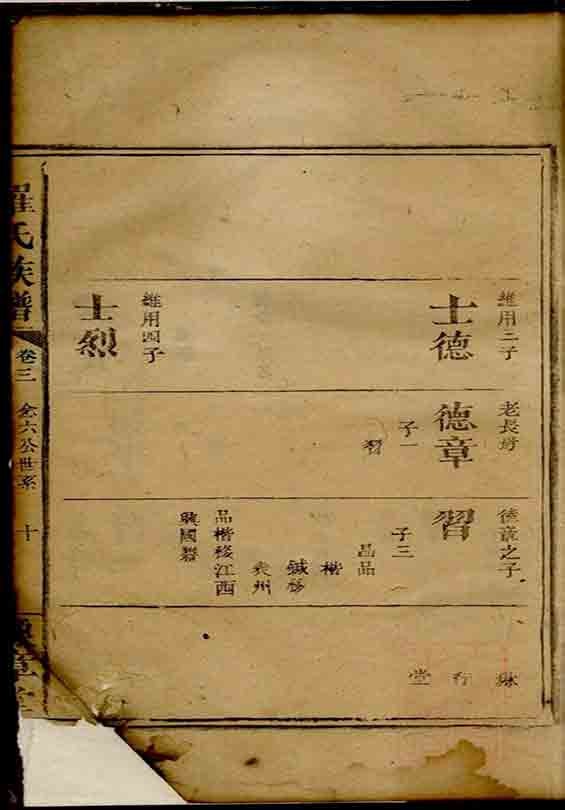 維用三子
士德
維用四子
士烈
老長房
德章
子一
習
德章之子
習
子三
昌品
楷
緘移
袁州
品楷移江西
興國縣
堂
行
氏族譜
卷三
全六公世系
十